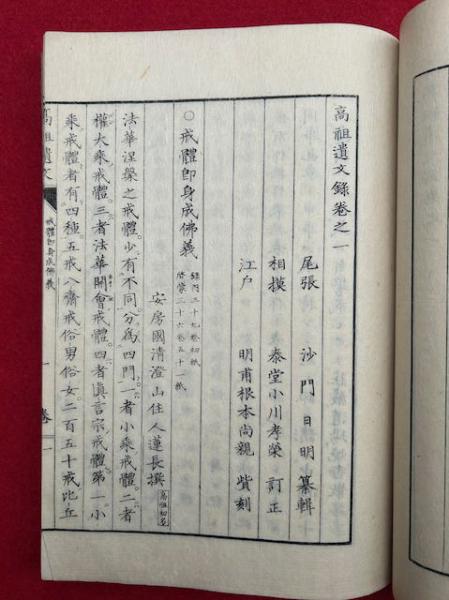 高祖遺文錄卷之一
尾張 沙門日明 纂輯
相摸 泰堂小川孝榮 訂正
江戶 明甫根本尚親 貲刻
○戒體即身成佛義
錄內三十九卷初紙
啓蒙三十六卷五十一紙
安房國清澄山住人蓮長撰
法華涅槃之戒體少有不同分爲四門一者小乘戒體二者
權大乘戒體三者法華開會戒體四者眞言宗戒體第一小
乘戒體者有四種五戒八齋戒俗男俗女二百五十戒比丘
高祖遺文
戒體即身成佛義
卷一